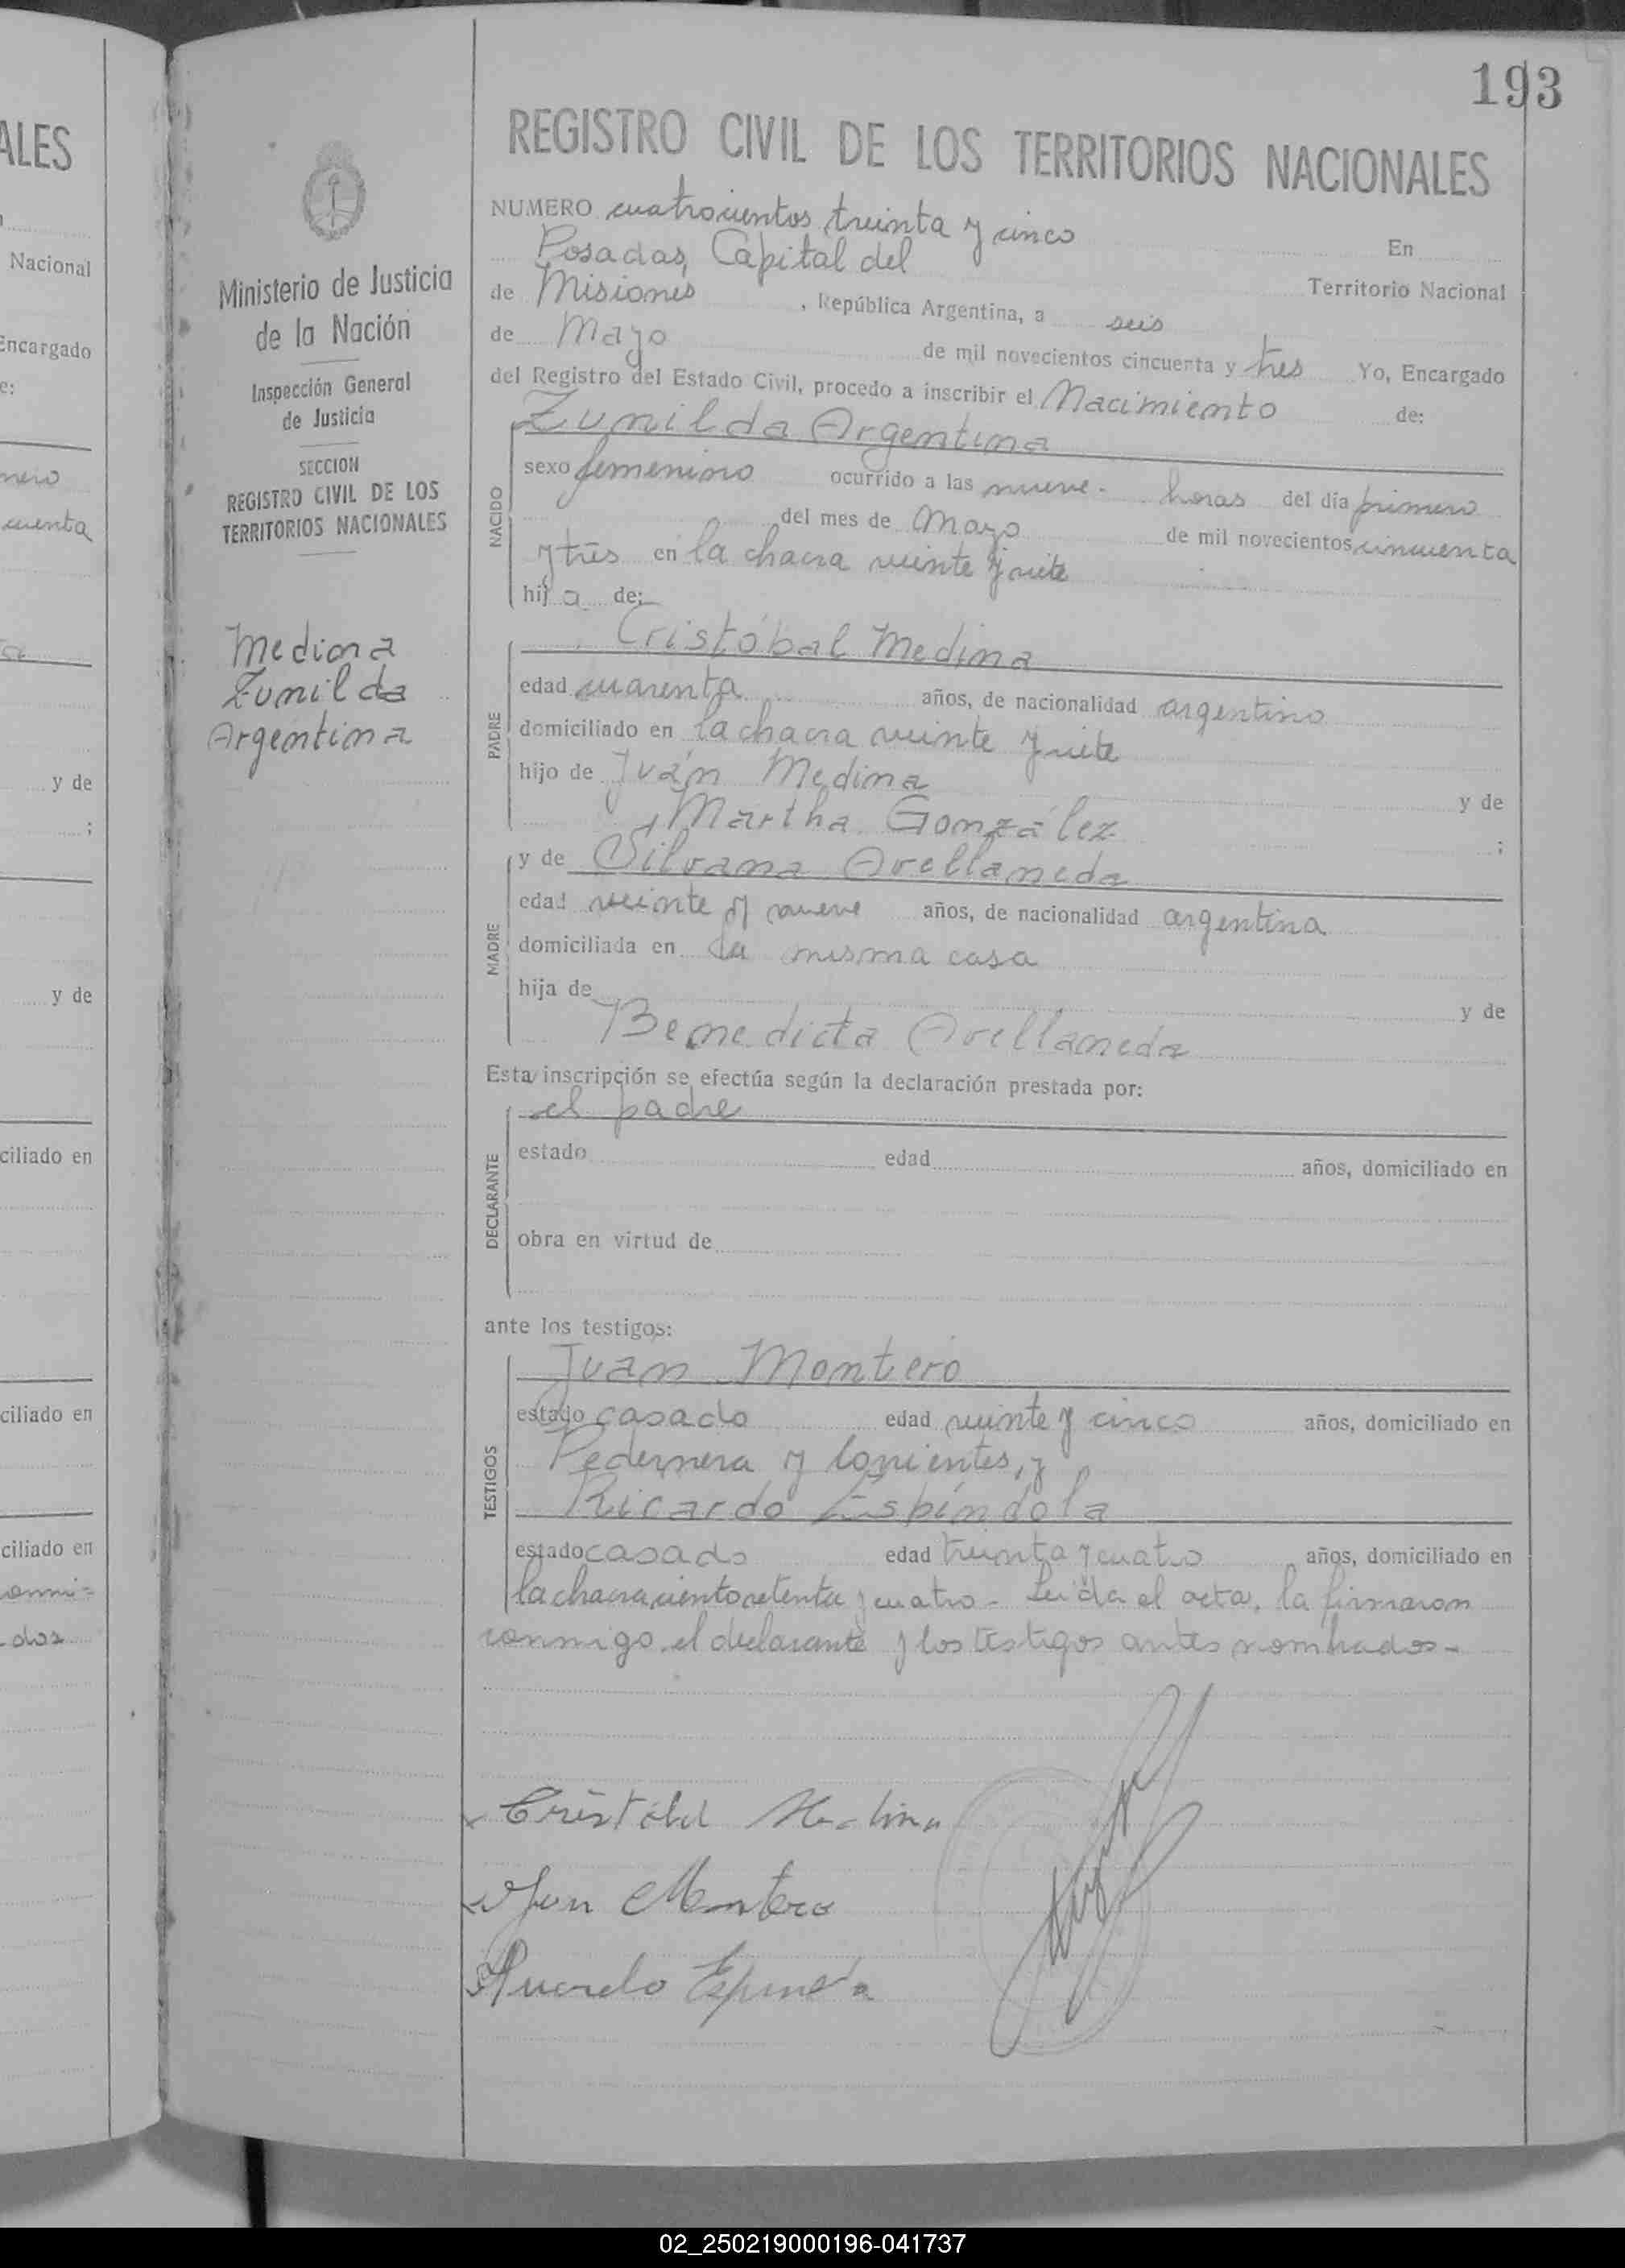 193
REGISTRO CIVIL DE LOS TERRITORIOS NACIONALES
NUMERO cuatrocientos treinta y cinco En
Posadas, Capital del Territorio Nacional
de Misiones, República Argentina, a seis
de Mayo de mil novecientos cincuenta y tres Yo, Encargado
del Registro del Estado Civil, procedo a inscribir el Nacimiento de:
Zunilda Argentina
NACIDO
sexo femenino ocurrido a las nueve- horas del día primero
del mes de Mayo de mil novecientos cincuenta
y tres en la chacra veinte y siete
hija de:
Cristóbal Medina
PADRE
edad cuarenta años, de nacionalidad argentino
domiciliado en la chacra veinte y siete
hijo de Juán Medina y de
Martha González ;
y de Silvana Avellaneda
MADRE
edad veinte y nueve años, de nacionalidad argentina
domiciliada en la misma casa
hija de y de
Benedicta Avellaneda
Esta inscripción se efectúa según la declaración prestada por:
el padre
DECLARANTE
estado edad años, domiciliado en
obra en virtud de
ante los testigos:
Juan Montiero
TESTIGOS
estado casado edad veinte y cinco años, domiciliado en
Pedernera y Corrientes, y
Ricardo Espíndola
estado casado edad treinta y cuatro años, domiciliado en
la chacra ciento setenta y cuatro- Leída el acta, la firmaron
conmigo el declarante y los testigos antes nombrados-
Cristóbal Medina
Juan Montero
Ricardo
Ministerio de Justicia
de la Nación
Inspección General
de Justicia
SECCION
REGISTRO CIVIL DE LOS
TERRITORIOS NACIONALES
Medina
Zunilda
Argentina
ALES
Nacional
Encargado
e:
mero
cuenta
y de
;
y de
ciliado en
ciliado en
ciliado en
onmi=
dos
02_250219000196-041737